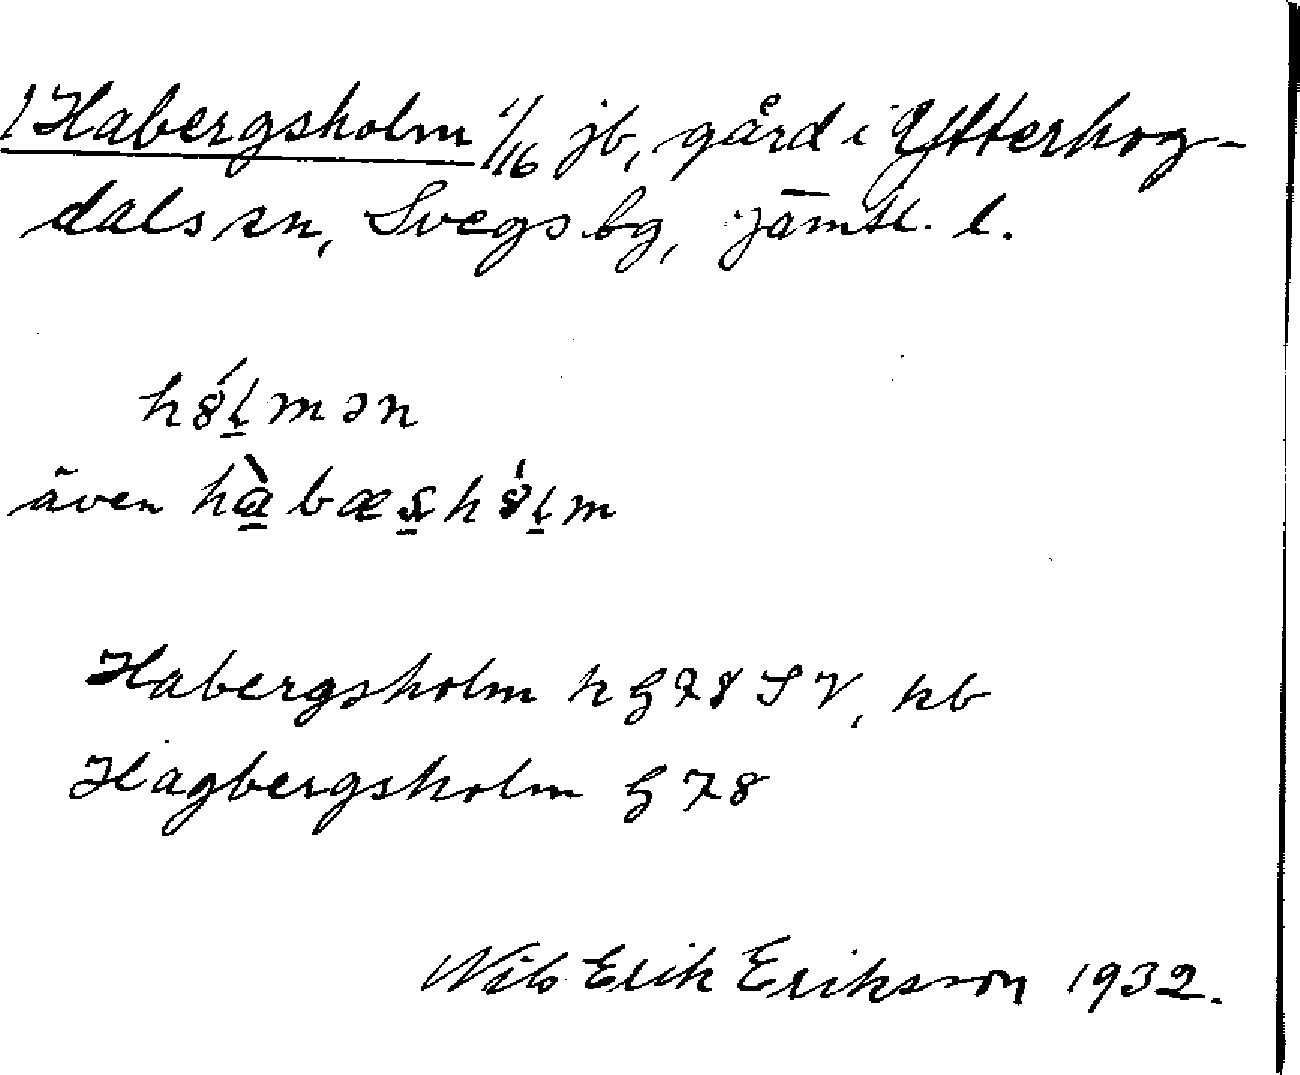 1 Habergsholm 1/16 jb, gård i Ytterhog-
dals sn, Svegs bg, Jämtl. l.
h8́ḻmən
även hàbæs̱h8́ḻm
Habergsholm hG78 SV, hb
Hagbergsholm G78
Nils Erik Eriksson 1932.